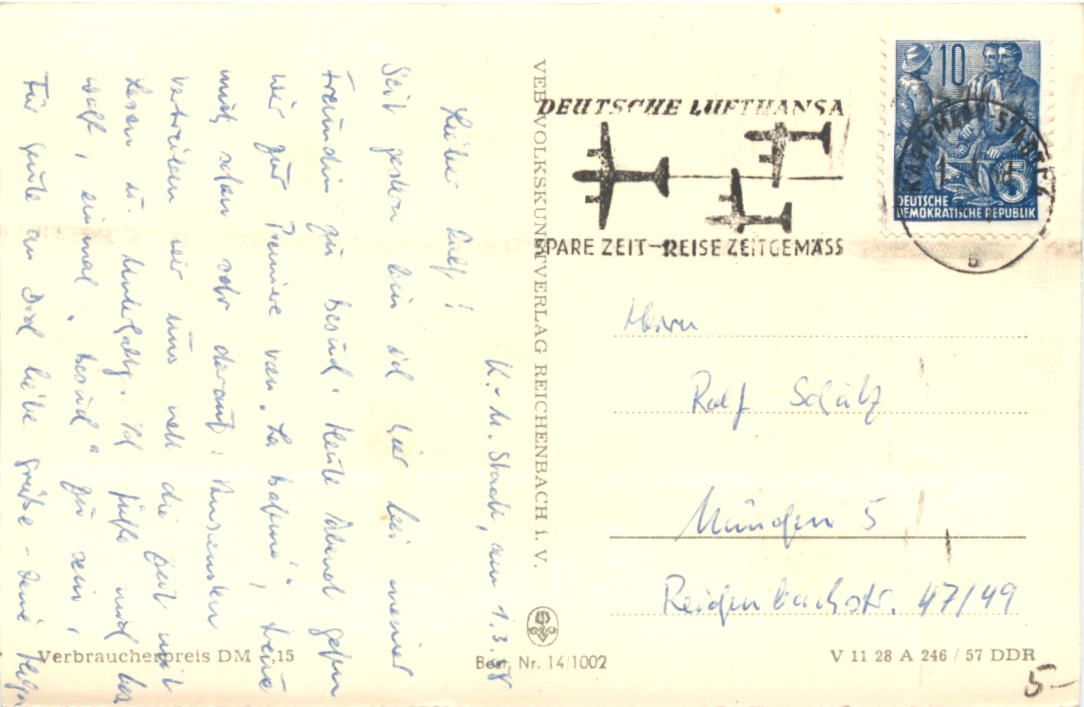 DEUTSCHE LUFTHANSA
SPARE ZEIT - REISE ZEITGEMÄSS
10
5
DEUTSCHE
DEMOKRATISCHE REPUBLIK
KARL-MARX-STADT
b
K.-M. Stadt, am 1.3.58
Lieber Ralf!
Seit gestern bin ich hier bei meiner
Freundin zu Besuch. Heute Abend gehen
wir zur Premiere von "La Bohème", freue
mich schon sehr darauf. Ansonsten
vertreiben wir uns nett die Zeit mit
Lesen u. Unterhaltg. Ich fühle mich
wohl, einmal "Besuch" zu sein,
Für heute an Dich liebe Grüße - Deine Helga
VEB VOLKSKUNSTVERLAG REICHENBACH i. V.
Herrn
Rolf Schätz
München 5
Reichenbachstr. 47/49
Verbraucherpreis DM -,15
Best. Nr. 14/1002
V 11 28 A 246 / 57 DDR
5-